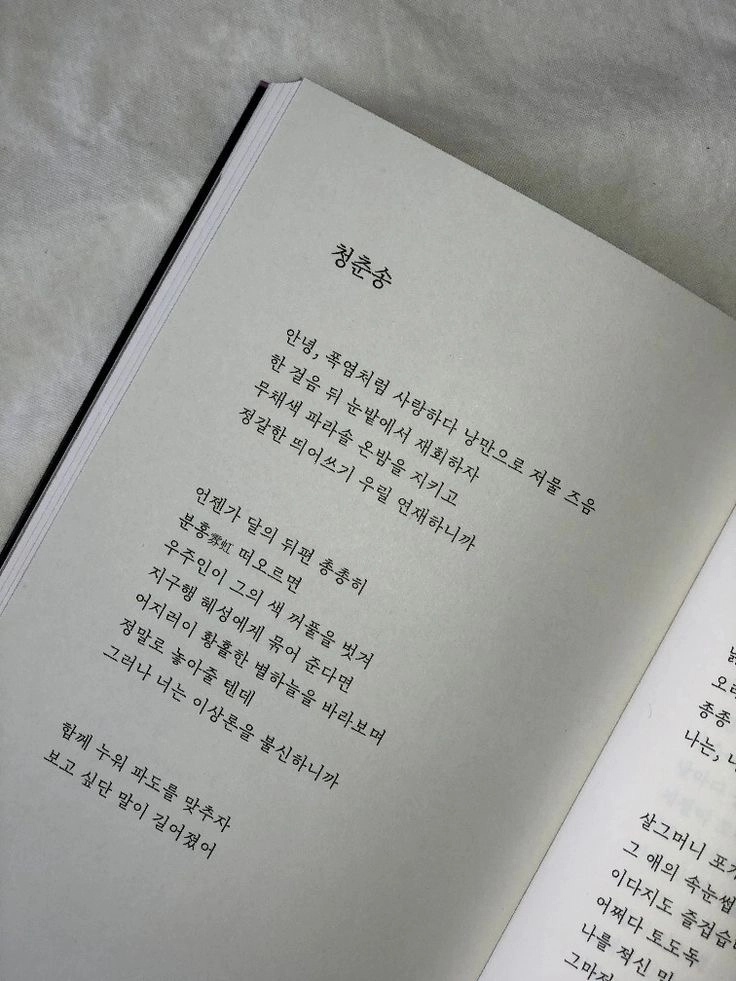 청춘송
안녕, 폭엽처럼 사랑하다 낭만으로 저물 즈음
한 걸음 뒤 눈밭에서 재회하자
무채색 파라솔 온밤을 지키고
정갈한 띄어쓰기 우릴 연재하니까
언젠가 달의 뒤편 총총히
분홍雾虹 떠오르면
우주인이 그의 색 꺼풀을 벗겨
지구행 혜성에게 묶어 준다면
어지러이 황홀한 별하늘을 바라보며
정말로 놓아줄 텐데
그러나 너는 이상론을 불신하니까
함께 누워 파도를 맞추자
보고 싶단 말이 길어졌어
오
종종
나는,
살그머니
그 애의 속눈썹
이다지도
어쩌다 토도독
나를 적신